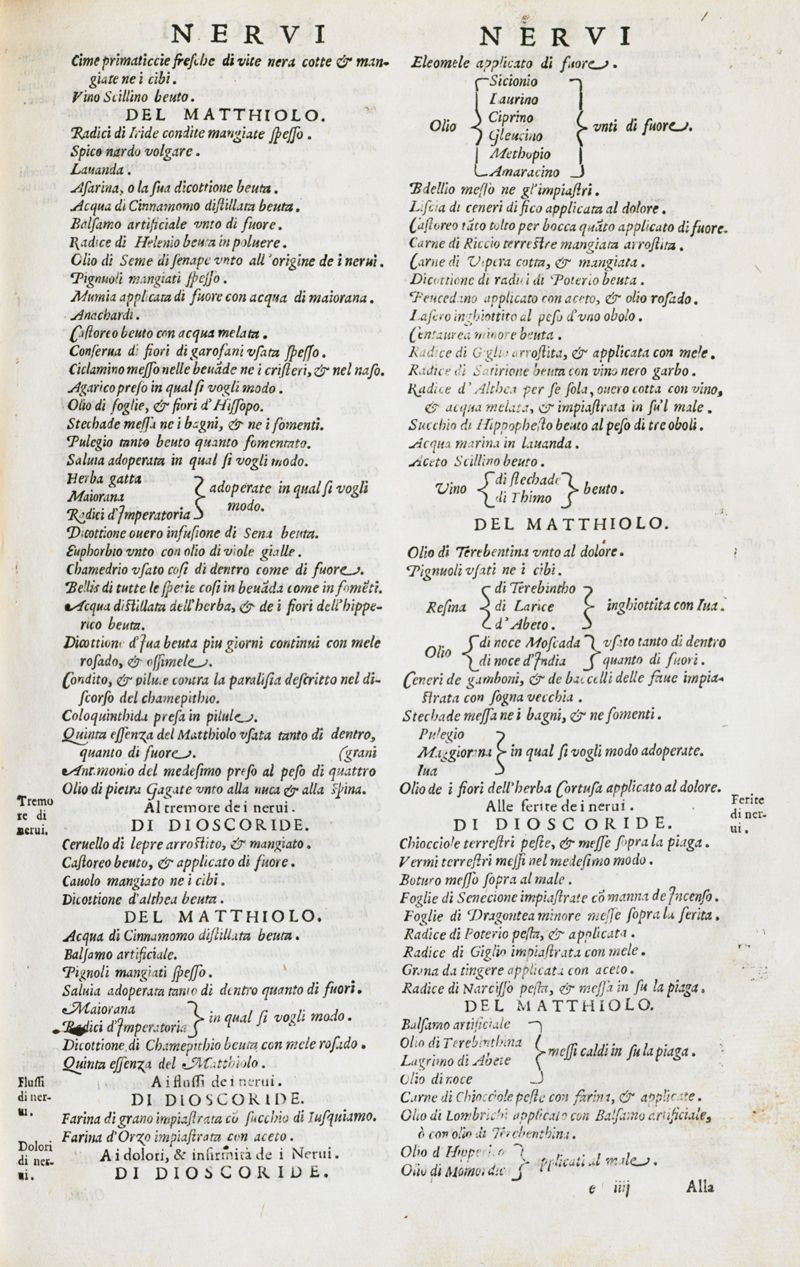 NERVI
Cime primaticcie fresche di vite nera cotte & man-
giate ne i cibi.
Vino Scillino beuto.
DEL MATTHIOLO.
Radici di Iride condite mangiate spesso.
Spico nardo volgare.
Lauanda.
Asarina, o la sua dicottione beuta.
Acqua di Cinnamomo distillata beuta.
Balsamo artificiale vnto di fuore.
Radice di Helenio beuta in poluere.
Olio di Seme di senape vnto all'origine de i nerui.
Pignuoli mangiati spesso.
Mumia applicata di fuore con acqua di maiorana.
Anachardi.
Castoreo beuto con acqua melata.
Conserua di fiori di garofani vsata spesso.
Ciclamino messo nelle beuāde ne i cristeri, & nel naso.
Agarico preso in qual si vogli modo.
Olio di foglie, & fiori d'Hissopo.
Stechade messa ne i bagni, & ne i fomenti.
Pulegio tanto beuto quanto fomentato.
Saluia adoperata in qual si vogli modo.
Herba gatta
Maiorana
Radici d'Imperatoria
adoperate in qual si vogli
modo.
Dicottione ouero infusione di Sena beuta.
Euphorbio vnto con olio di viole gialle.
Chamedrio vsato cosi di dentro come di fuore.
Bellis di tutte le spetie cosi in beuāda come in fomēti.
Acqua distillata dell'herba, & de i fiori dell'hippe-
rico beuta.
Dicottione d'Iua beuta piu giorni continui con mele
rosado, & ossimele.
Condito, & pilule contra la paralisia descritto nel di-
scorso del chamepithio.
Coloquinthida presa in pilule.
Quinta essenza del Matthiolo vsata tanto di dentro,
quanto di fuore. (grani
Antimonio del medesimo preso al peso di quattro
Olio di pietra Gagate vnto alla nuca & alla spina.
Tremo
re di
nerui.
Al tremore de i nerui.
DI DIOSCORIDE.
Ceruello di lepre arrostito, & mangiato.
Castoreo beuto, & applicato di fuore.
Cauolo mangiato ne i cibi.
Dicottione d'althea beuta.
DEL MATTHIOLO.
Acqua di Cinnamomo distillata beuta.
Balsamo artificiale.
Pignoli mangiati spesso.
Saluia adoperata tanto di dentro quanto di fuori.
Maiorana
Radici d'Imperatoria
in qual si vogli modo.
Dicottione di Chamepithio beuta con mele rosado.
Quinta essenza del Matthiolo.
Flussi
di ner-
ui.
A i flussi de i nerui.
DI DIOSCORIDE.
Farina di grano impiastrata cō succhio di Iusquiamo.
Farina d'Orzo impiastrata con aceto.
Dolori
di ner-
ui.
A i dolori, & infirmità de i Nerui.
DI DIOSCORIDE.
NERVI
Eleomele applicato di fuore.
Olio
Sicionio
Laurino
Ciprino
Gleucino
Methopio
Amaracino
vnti di fuore.
Bdellio messo ne gl'impiastri.
Liscia di ceneri di fico applicata al dolore.
Castoreo tāto tolto per bocca quāto applicato di fuore.
Carne di Riccio terrestre mangiata arrostita.
Carne di Vipera cotta, & mangiata.
Dicottione di radici di Poterio beuta.
Peucedano applicato con aceto, & olio rosado.
Lasero inghiottito al peso d'vno obolo.
Centaurea minore beuta.
Radice di Giglio arrostita, & applicata con mele.
Radice di Satirione beuta con vino nero garbo.
Radice d'Althea per se sola, ouero cotta con vino,
& acqua melata, & impiastrata in su'l male.
Succhio di Hippophesto beuto al peso di tre oboli.
Acqua marina in lauanda.
Aceto Scillino beuto.
Vino
di stechade
di Thimo
beuto.
DEL MATTHIOLO.
Olio di Terebentina vnto al dolore.
Pignuoli vsati ne i cibi.
Resina
di Terebintho
di Larice
d'Abeto.
inghiottita con Iua.
Olio
di noce Moscada
di noce d'India
vsato tanto di dentro
quanto di fuori.
Ceneri de gamboni, & de baccelli delle faue impia-
strata con sogna vecchia.
Stechade messa ne i bagni, & ne fomenti.
Pulegio
Maggiorana
Iua
in qual si vogli modo adoperate.
Olio de i fiori dell'herba Cortusa applicato al dolore.
Ferite
di ner-
ui.
Alle ferite de i nerui.
DI DIOSCORIDE.
Chiocciole terrestri peste, & messe sopra la piaga.
Vermi terrestri messi nel medesimo modo.
Boturo messo sopra al male.
Foglie di Senecione impiastrate cō manna de Incenso.
Foglie di Dragontea minore messe sopra la ferita.
Radice di Poterio pesta, & applicata.
Radice di Giglio impiastrata con mele.
Grana da tingere applicata con aceto.
Radice di Narcisso pesta, & messa in su la piaga.
DEL MATTHIOLO.
Balsamo artificiale
Olio di Terebinthina
Lagrimo di Abete
Olio di noce
messi caldi in su la piaga.
Carne di Chiocciole peste con farina, & applicate.
Olio di Lombrichi applicato con Balsamo artificiale,
ò con olio di Terebenthina.
Olio d'Hipperico
Olio di Momordica
applicati al male.
e iiij
Alla